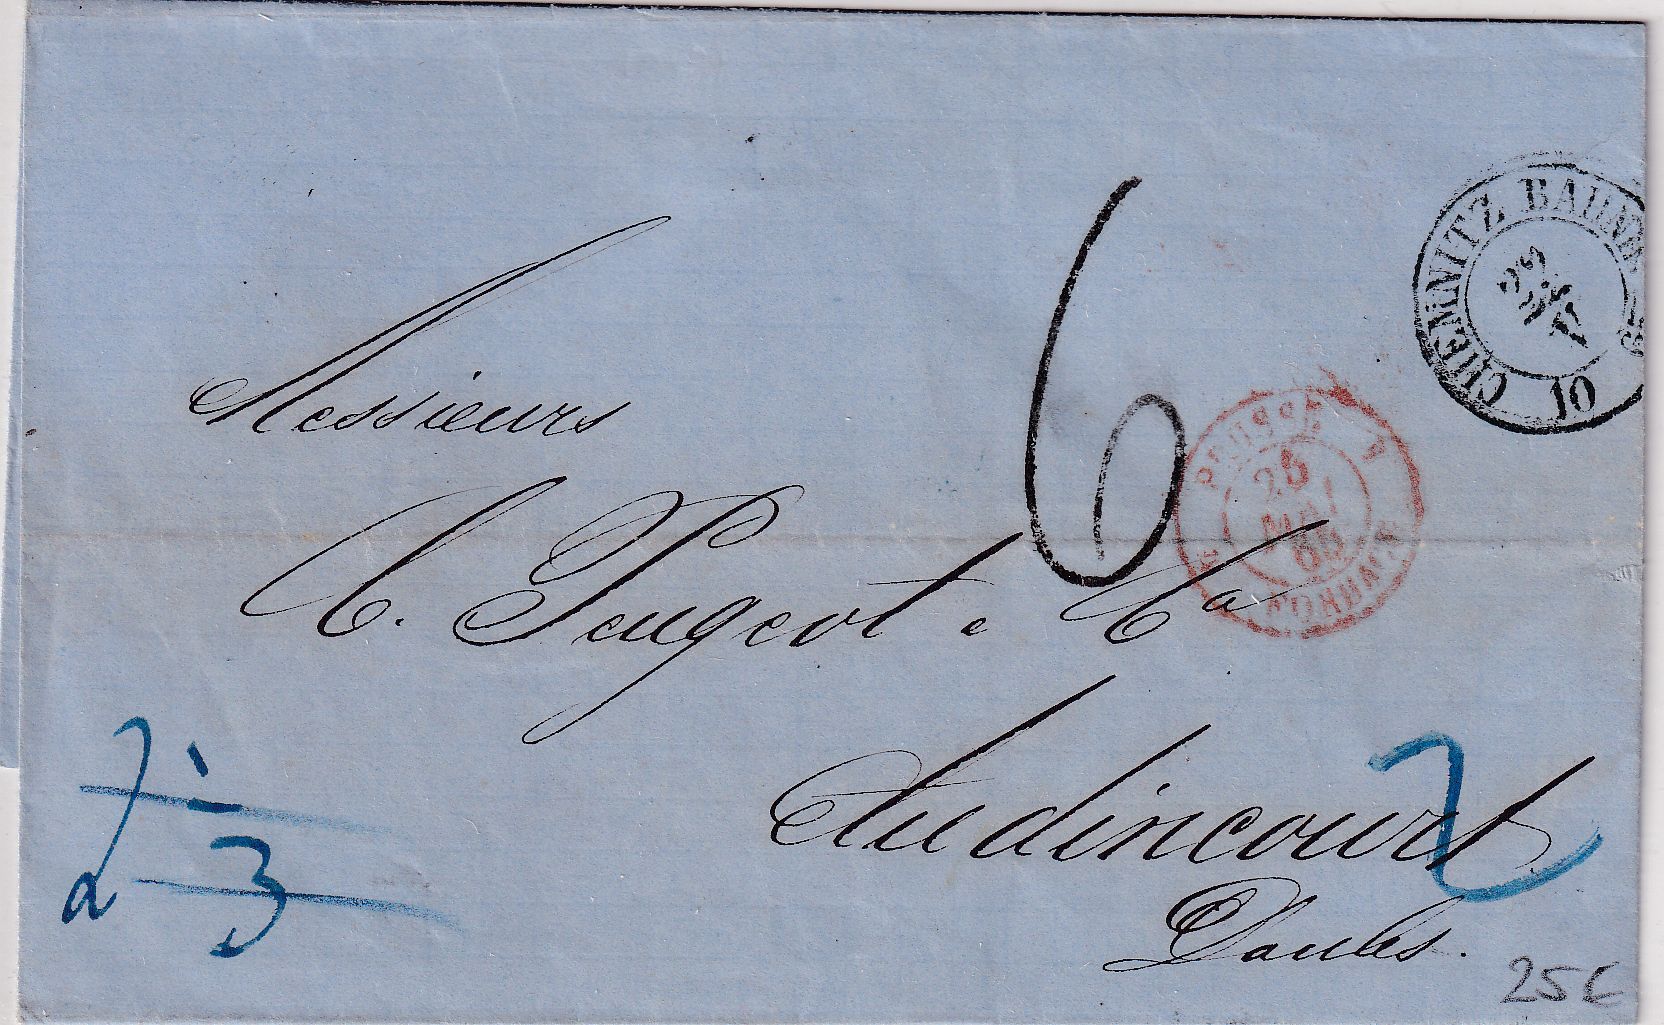 CHEMNITZ BAHNH
10
6
PRUSSE
25
MAI
65
FORBACH
Messieurs
C. Peugeot e Co
Audincourt
Doubs.
2
3
2
25€